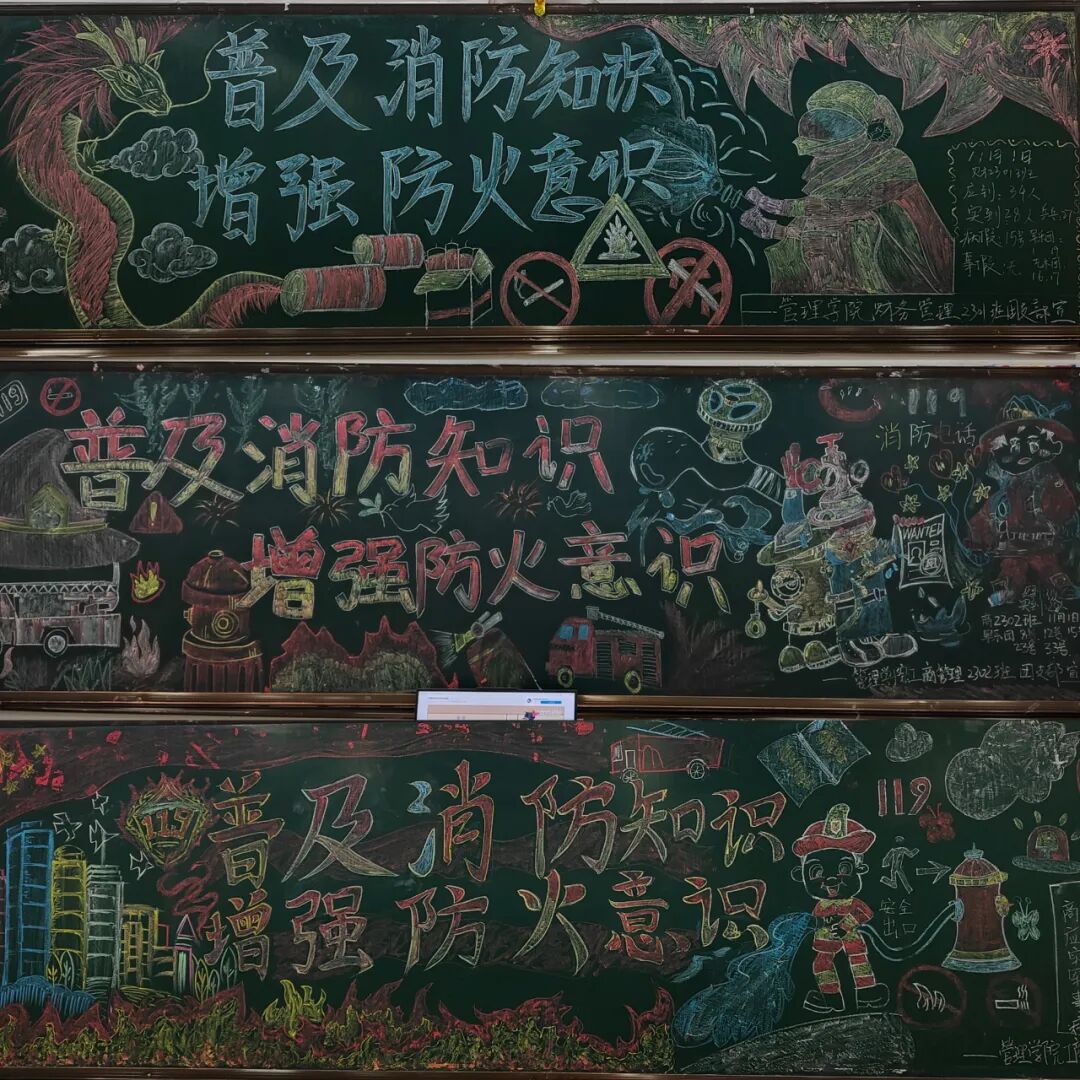 普及消防知识
增强防火意识
11月1日
应到:34人
实到28人
事假:无
——管理学院 财务管理2301班团支部宣
119
普及消防知识
增强防火意识
119
消防电话
WANTED
商2302班 11月1日
——管理学院工商管理2302班 团支部宣
119
普及消防知识
增强防火意识
119
安全
出口
——管理学院